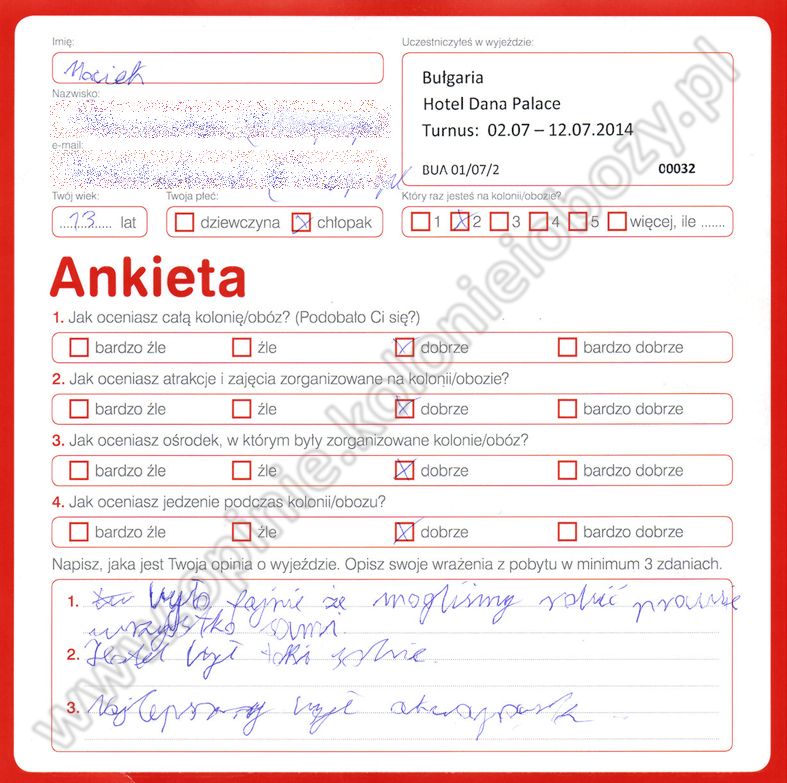 Imię:
Maciek
Nazwisko:
e-mail:
Uczestniczyłeś w wyjeździe:
Bułgaria
Hotel Dana Palace
Turnus: 02.07 – 12.07.2014
BUŁ 01/07/2 00032
Twój wiek:
13 lat
Twoja płeć:
dziewczyna chłopak
Który raz jesteś na kolonii/obozie?
1 2 3 4 5 więcej, ile .......
Ankieta
1. Jak oceniasz całą kolonię/obóz? (Podobało Ci się?)
bardzo źle źle dobrze bardzo dobrze
2. Jak oceniasz atrakcje i zajęcia zorganizowane na kolonii/obozie?
bardzo źle źle dobrze bardzo dobrze
3. Jak oceniasz ośrodek, w którym były zorganizowane kolonie/obóz?
bardzo źle źle dobrze bardzo dobrze
4. Jak oceniasz jedzenie podczas kolonii/obozu?
bardzo źle źle dobrze bardzo dobrze
Napisz, jaka jest Twoja opinia o wyjeździe. Opisz swoje wrażenia z pobytu w minimum 3 zdaniach.
1. było fajnie że mogliśmy robić prawie
wszystko sami.
2. Hotel był taki sobie.
3. Najlepszy był akwapark
www.opinie.kolonieiobozy.pl